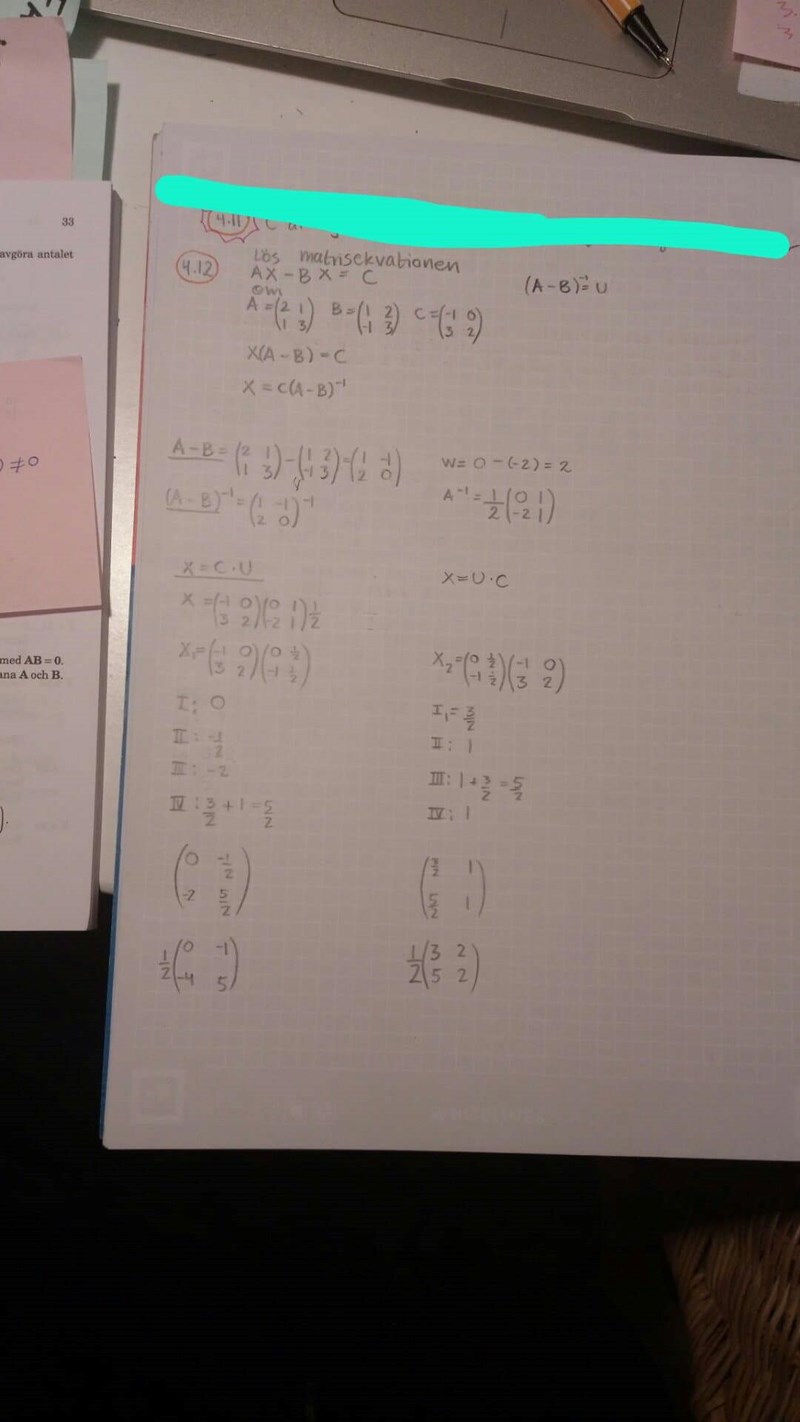 33
avgöra antalet
) ≠0
med AB = 0.
ana A och B.
).
4.11
4.12 Lös matrisekvationen
AX - BX = C
(A-B)⁻¹=U
om
A = (2 1; 1 3) B = (1 2; -1 3) C = (-1 0; 3 2)
X(A-B) = C
X = C(A-B)⁻¹
A-B = (2 1; 1 3) - (1 2; -1 3) = (1 -1; 2 0)
W = 0 - (-2) = 2
(A-B)⁻¹ = (1 -1; 2 0)⁻¹
A⁻¹ = 1/2 (0 1; -2 1)
X = C·U
X = U·C
X = (-1 0; 3 2)(0 1; -2 1) 1/2
X₁ = (-1 0; 3 2)(0 1/2; -1 1/2)
X₂ = (0 1/2; -1 1/2)(-1 0; 3 2)
I: 0
I₁ = 3/2
II: -1/2
II: 1
III: -2
III: 1 + 3/2 = 5/2
IV: 3/2 + 1 = 5/2
IV: 1
(0 -1/2; -2 5/2)
(3/2 1; 5/2 1)
1/2 (0 -1; -4 5)
1/2 (3 2; 5 2)